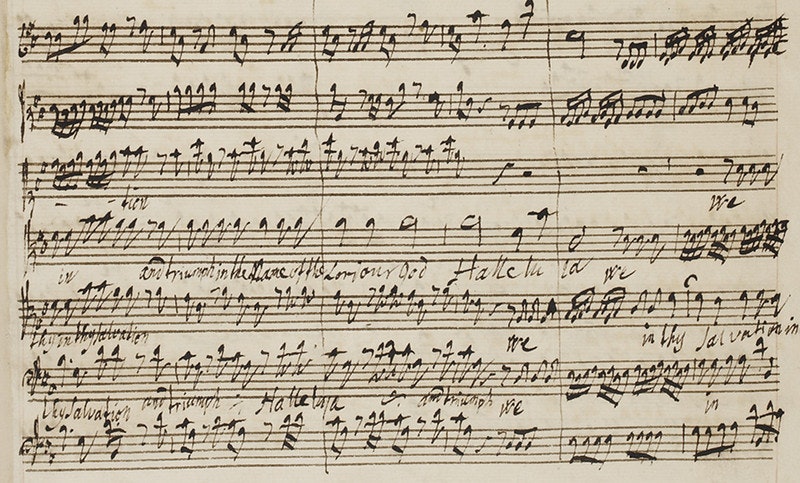 tion we
in and triumph in the Name of the Lord our God Hallelu ia we
thy in thy salvation we in thy Salvation in
thy Salvation and triumph Halleluja and triumph we in